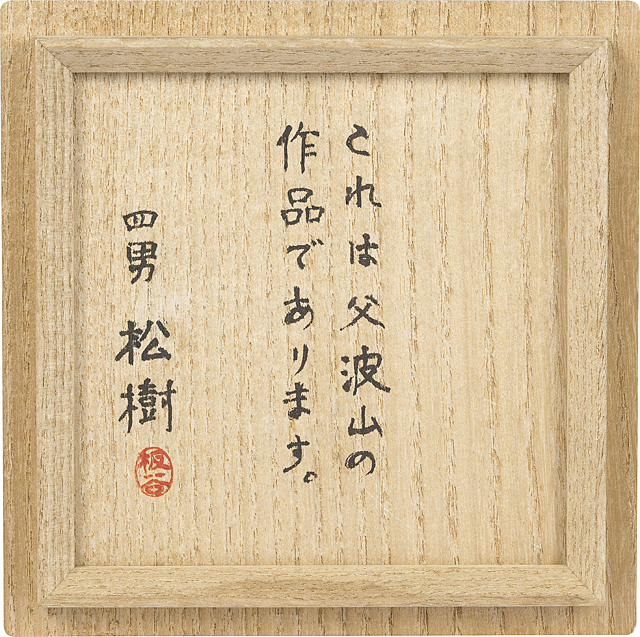 これは父波山の
作品であります。
四男 松樹
板谷